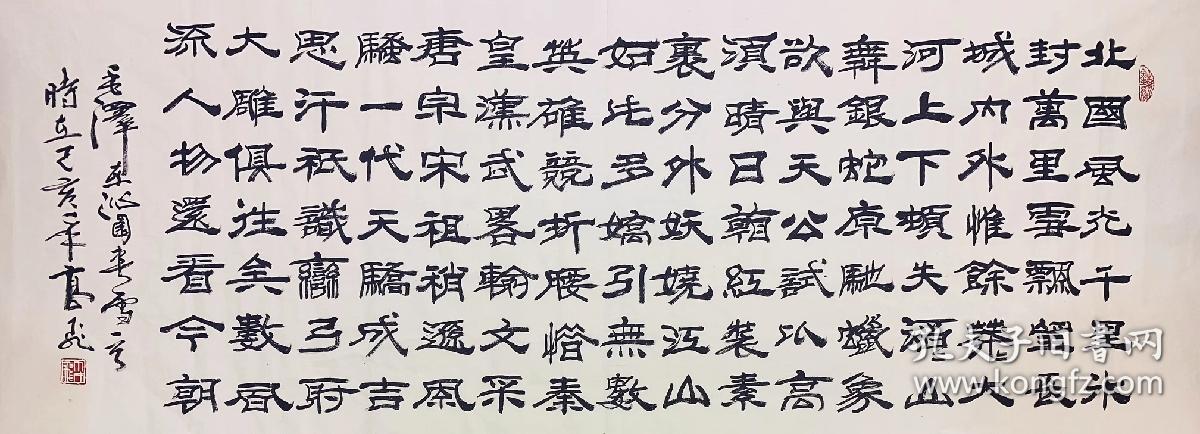 北國風光千里冰
封萬里雪飄望長
城內外惟餘莽大
河上下頓失滔山
舞銀蛇原馳蠟象
欲與天公試比高
須晴日看紅裝素
裹分外妖嬈江山
如此多嬌引無數
英雄競折腰惜秦
皇漢武畧輸文采
唐宗宋祖稍遜風
騷一代天驕成吉
思汗祇識彎弓射
大雕俱往矣數風
流人物還看今朝
毛澤東沁園春雪
時在己亥年高飛
孔夫子旧书网
www.kongfz.com